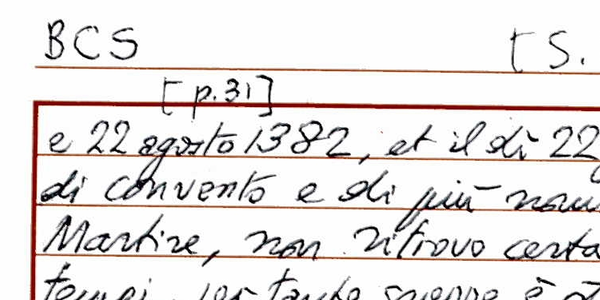 BCS [S.
[p.31]
e 22 agosto 1382, et il dì 22
di convento e di più nau
Martire, non ritrovo certa
tempi, per tante guerre è